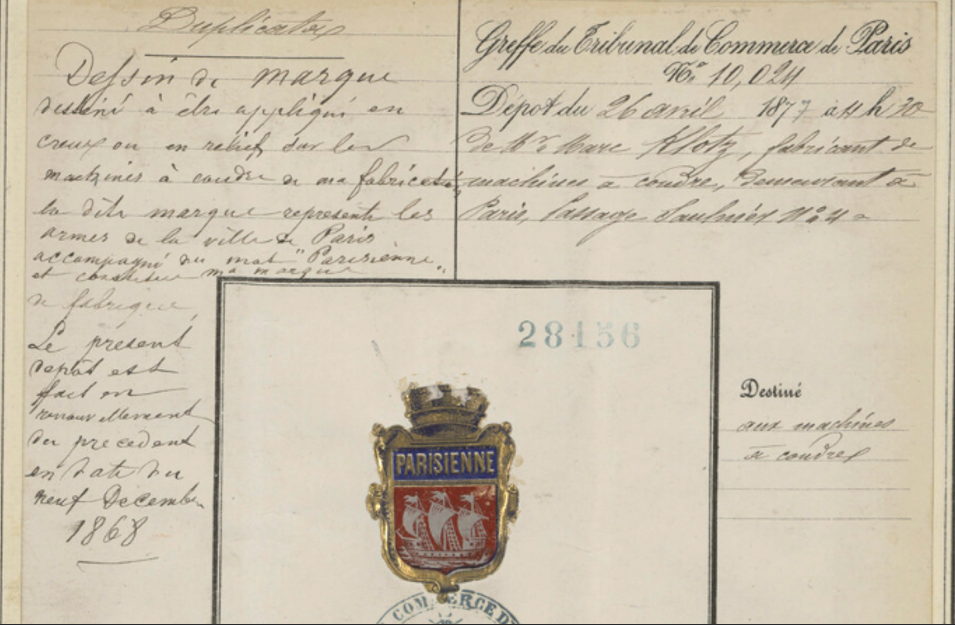 Duplicata
Dessin de marque
destiné à être appliqué en
creux ou en relief sur les
machines à coudre de ma fabrication,
la dite marque represente les
armes de la ville de Paris
accompagné du mot "Parisienne"
et constitue ma marque
de fabrique
Le présent
depôt est
fait en
renouvellement
du precedent
en date du
neuf Décembre
1868
Greffe du Tribunal de Commerce de Paris
No. 10,024
Dépot du 26 avril 1877 à 11 h 30
de Mr. Marc Klotz, fabricant de
machines à coudre, demeurant à
Paris, Passage Saulnier No. 4
28156
PARISIENNE
COMMERCE D
Destiné
aux machines
à coudre